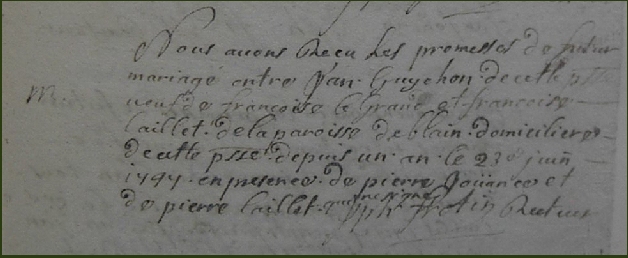 Nous avons Recu Les promesses de futur
mariage entre Jan Guychon de cette psse
M veuf de francoise le Grand et francoise
Laillet de la paroisse de blain domiciliere
de cette psse depuis un an le 23e juin
en presence de pierre et
de pierre Laillet Recteur